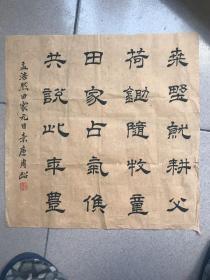 桑野就耕父
荷鋤隨牧童
田家占氣候
共說此年豊
孟浩然田家元日